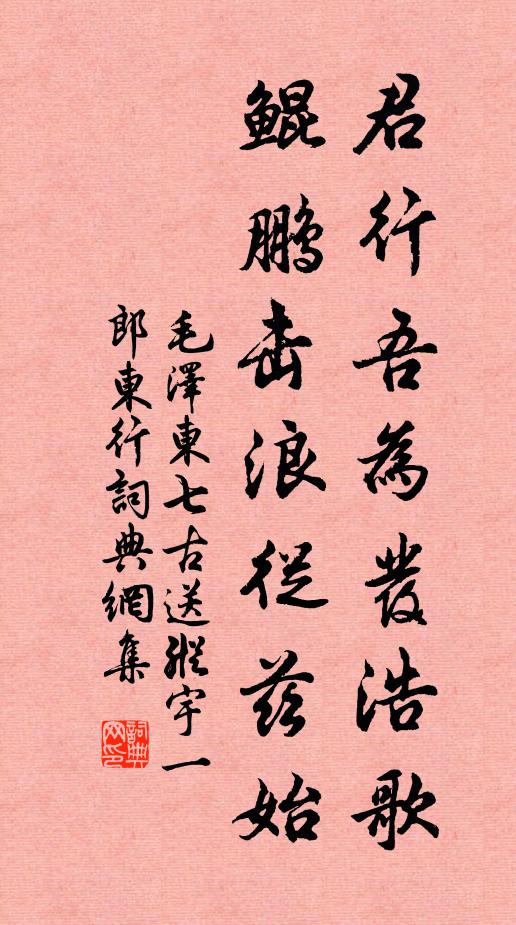 君行吾為發浩歌
鯤鵬击浪從茲始
毛澤東七古送縱宇一
郎東行詞典網集
詞典
网印